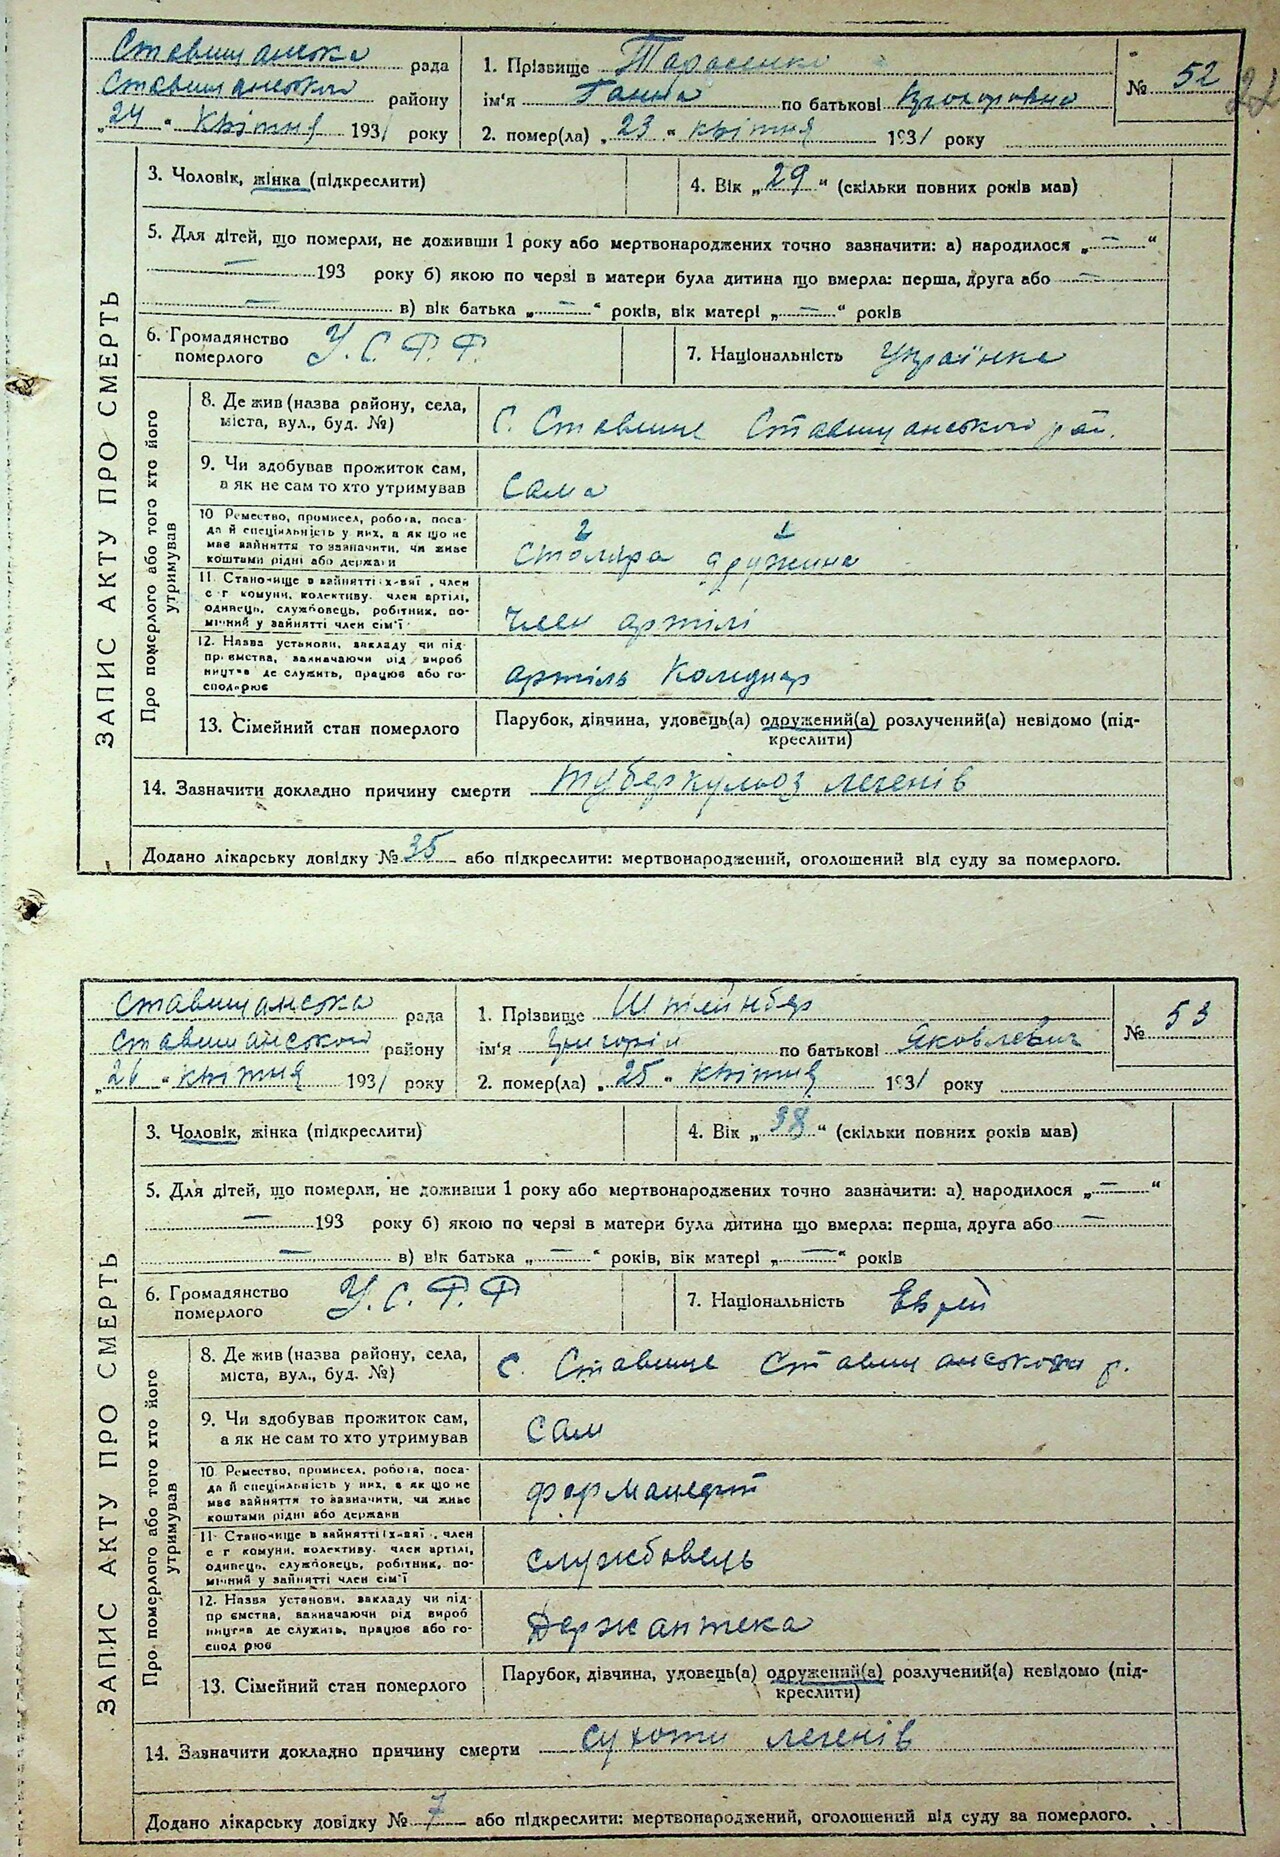 Ставищанська рада
Ставищанського району
„24“ квітня 1931 року
1. Прізвище Тарасенко
ім'я Ганна по батькові Прохоровна
2. помер(ла) „23“ квітня 1931 року
№ 52
22
ЗАПИС АКТУ ПРО СМЕРТЬ
3. Чоловік, жінка (підкреслити)
4. Вік „29“ (скільки повних років мав)
5. Для дітей, що померли, не доживши 1 року або мертвонароджених точно зазначити: а) народилося „—“
— 193 року б) якою по черзі в матери була дитина що вмерла: перша, друга або —
— в) вік батька „—“ років, вік матері „—“ років
6. Громадянство
померлого У.С.Р.Р.
7. Національність Українка
Про померлого або того хто його
утримував
8. Де жив (назва району, села,
міста, вул., буд. №)
С. Ставище Ставищанського рай.
9. Чи здобував прожиток сам,
а як не сам то хто утримував
сама
10 Ремество, промисел, робота, поса-
да й спеціяльність у них, а як що не
має зайняття то зазначити, чи живе
коштами рідні або держави
2 1
столяра дружина
11. Становище в зайнятті х-ваї, член
с г комуни, колективу. член артілі,
одинець, службовець, робітник, по-
мічний у зайнятті член сім'ї
член артілі
12. Назва установи, закладу чи під-
приємства, зазначаючи рід вироб
ництва де служить, працює або го-
сподарює
артіль
13. Сімейний стан померлого
Парубок, дівчина, удовець(а) одружений(а) розлучений(а) невідомо (під-
креслити)
14. Зазначити докладно причину смерти туберкульоз легенів
Додано лікарську довідку № 35 або підкреслити: мертвонароджений, оголошений від суду за померлого.
Ставищанська рада
Ставищанського району
„26“ квітня 1931 року
1. Прізвище Штейнбер
ім'я Григорій по батькові Яковлевич
2. помер(ла) „25“ квітня 1931 року
№ 53
ЗАПИС АКТУ ПРО СМЕРТЬ
3. Чоловік, жінка (підкреслити)
4. Вік „38“ (скільки повних років мав)
5. Для дітей, що померли, не доживши 1 року або мертвонароджених точно зазначити: а) народилося „—“
— 193 року б) якою по черзі в матери була дитина що вмерла: перша, друга або —
— в) вік батька „—“ років, вік матері „—“ років
6. Громадянство
померлого У.С.Р.Р
7. Національність Еврей
Про померлого або того хто його
утримував
8. Де жив (назва району, села,
міста, вул., буд. №)
С. Ставище Ставищанського р.
9. Чи здобував прожиток сам,
а як не сам то хто утримував
сам
10 Ремество, промисел, робота, поса-
да й спеціяльність у них, а як що не
має зайняття то зазначити, чи живе
коштами рідні або держави
фармацевт
11 Становище в зайнятті х-ваї, член
с г комуни, колективу. член артілі,
одинець, службовець, робітник, по-
мічний у зайнятті член сім'ї
службовець
12. Назва установи, закладу чи під-
пр ємства, зазначаючи рід вироб
ництва де служить, працює або го-
спод рює
Держаптека
13. Сімейний стан померлого
Парубок, дівчина, удовець(а) одружений(а) розлучений(а) невідомо (під-
креслити)
14. Зазначити докладно причину смерти сухоти легенів
Додано лікарську довідку № 7 або підкреслити: мертвонароджений, оголошений від суду за померлого.